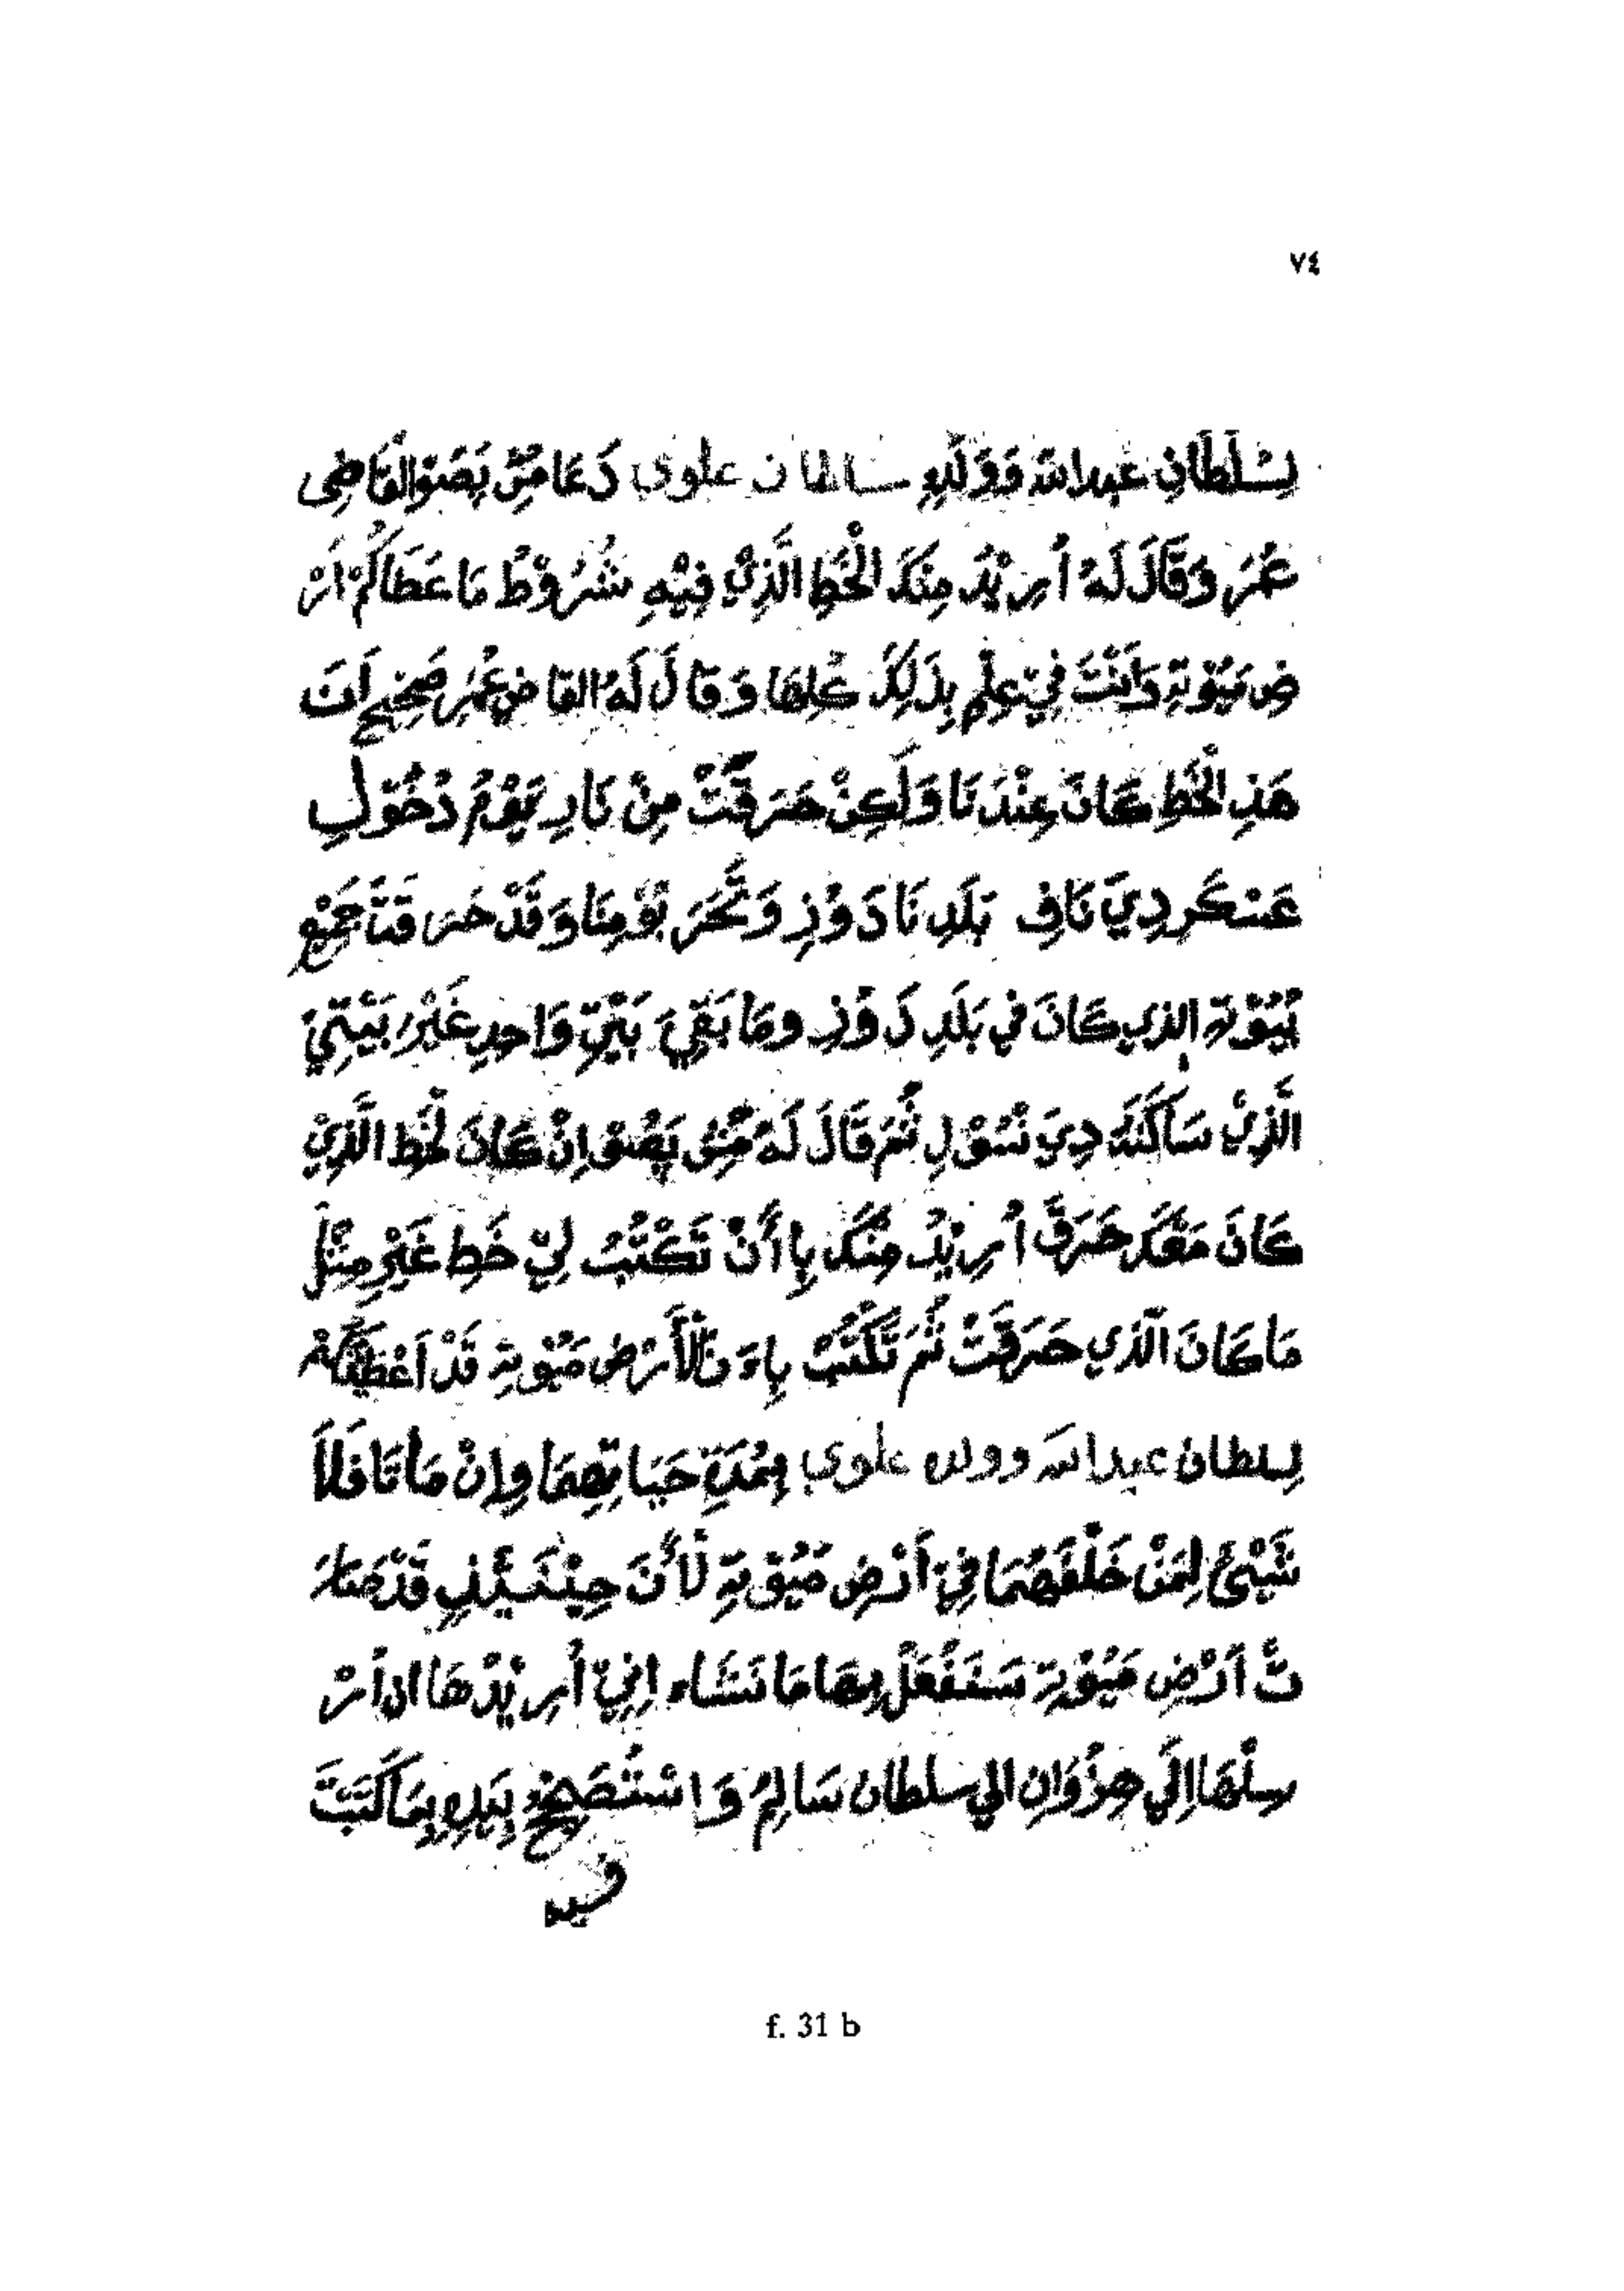 ٧٤
لِسُلْطَانِ عَبدالله وَوَلَدِهِ سلطان علوي دَعَا مُسِ پَصَوْ القَاضِى
عُمَرْ وَقَالَ لَهُ أُرِيْدُ مِنكَ الْخَطِ الَّذِيْ فِيْهِ شُرُوْطُ مَا عَطَاكُمْ اَرْ
ضِ مَيُوْتِهِ وَاَنْتَ فِيْ عِلْمِ بِذَلِكَ كُلِهَا وَقَالَ لَهُ القاضِ عُمَرْ صَحِيحِ اَنَ
هَذِ الْخَطِ كَانَ عِنْدَنَا وَلَكِنْ حَرَقَتْ مِنْ نَارِ يَوْمُ دُخُوْلِ
عَسْكَرِ دِيَ نَافِ بَلَدِ نَا دَوُنِ وَتَّحَرَ بُوْ مِنَا وَقَدْ حَرَقَتَا جَمِيْعِ
بُيُوْتِهِ الذي كَانَ في بَلَدِ دَوُنِ وَمَا بَقِيَ بَيْتٍ وَاحِدٍ غَيْرُ بَيْتِيْ
الَّذِيْ سَاكَنَهُ دِيَ نُسُوْلِ ثُمَّ قَالَ لَهُ مُسُ پَصُوْ اِنْ كَانَ لْخَطِ الَّذِيْ
كَانَ مَعَكَ حَرَقَ أُرِيْدُ مِنْكَ بِاأَنْ تَكْتُبُ لِيْ خَطِ غَيْرِ مِثْلُ
مَا كَانَ الّذي حَرَقَتْ ثُمَ تَكْتُبُ بِاءَنَ لْأَرْضِ مَيُوْتِهِ قَدْ اَعْطَيْتُكُمْ
لسلطان عبدالله وولده علوي بِمُدَّةِ حَيَاتِهِمَا وَاِنْ مَاتَا فَلَاَ
شَيْئُ لِمَنْ خَلْفَهُمَا فِيْ أَرْضِ مَيُوْتِهِ لَأَنَ حِيْنَئِيْذٍ قَدْ صَارَ
تْ أَرْضِ مَيُوْتِهِ سَنَفْعَلُ بِهَا مَا نَشَاء اِنِيْ أُرِيْدُهَا ان أُرْ
سِلْهَا اِلَي هِزُوَانِ الي سلطان سَالِمُ وَاسْتُصَحِحُ بِيَدِهِ بِمَا كَتَبَتَ
فيه
f. 31 b